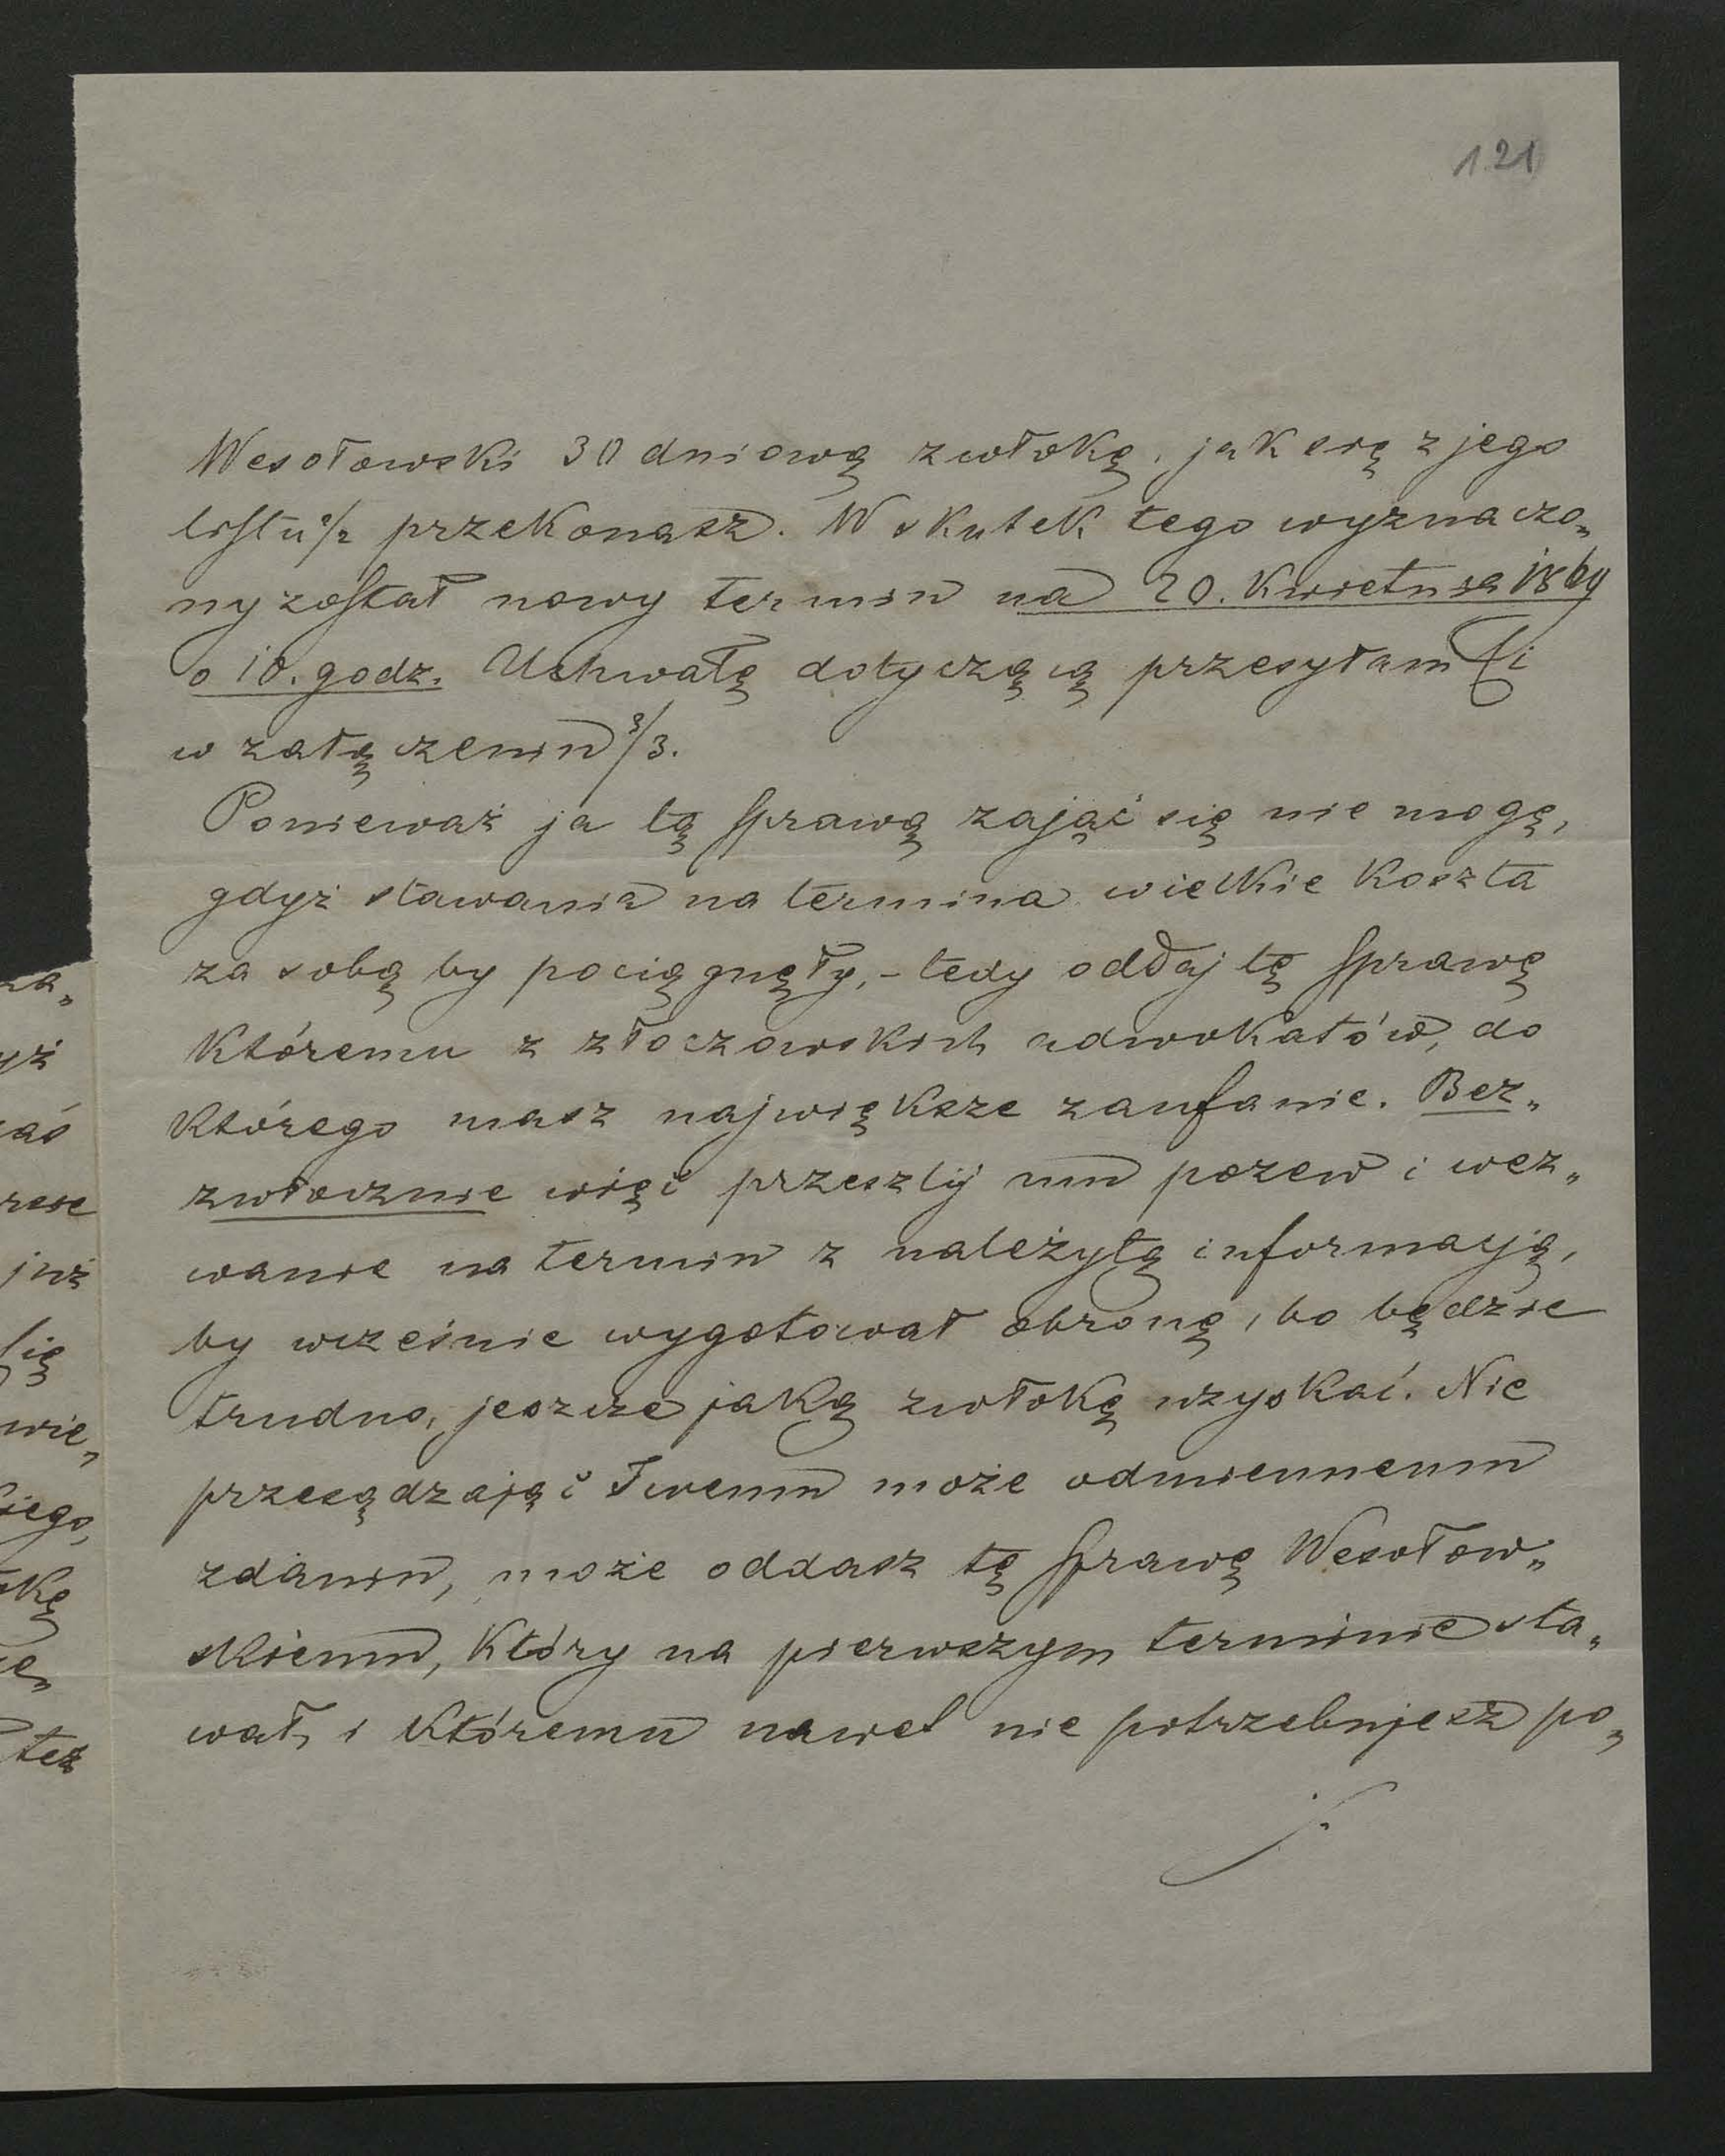 121
Wesołowski 30 dniową zwłokę, jak się z jego
listu ⁰/₂ przekonasz. W skutek tego wyznaczo„
ny został nowy termin na 20. Kwietnia 1869
o 10. godz. Uchwałę dotyczącą przesyłam Ci
w załączeniu ⁰/₃.
Ponieważ ja tą sprawą zająć się nie mogę,
gdyż stawania na termina wielkie koszta
za sobą by pociągnęły, – tedy oddaj tę sprawę
któremu z złoczowskich adwokatów, do
którego masz największe zaufanie. Bez„
zwłocznie więc przeszlij mu pozew i wez„
wanie na termin z należytą informacją,
by wcześnie wygotował obronę, bo będzie
trudno, jeszcze jaką zwłokę uzyskać. Nie
przesądzając Twemu może odmiennemu
zdaniu, może oddasz tę sprawę Wesołow„
skiemu, który na pierwszym terminie sta„
wał, i któremu nawet nie potrzebujesz po„
za„
yż
rese
już
się
wie„
też